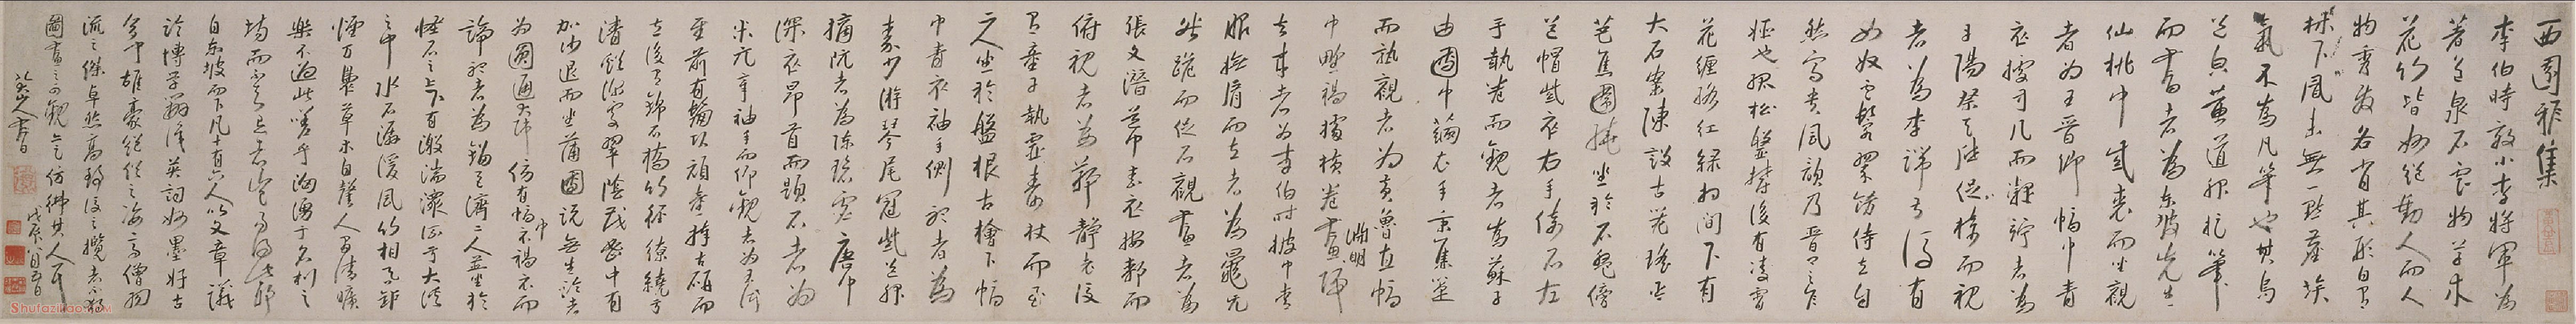 西園雅集
李伯時效小李將軍為
著色泉石雲物草木
花竹皆妙絕動人而人
物秀發各肖其形自有
林下風味無一點塵埃
氣不為凡筆也其烏
黃道服捉筆
而書者為東坡先生
仙桃巾紫裘而坐觀
者為王晉卿幅巾青
衣據方几而凝竚者為
丹陽蔡天啟捉椅而視
者為李端叔後有
女奴雲鬟翠飾侍立自
然富貴風韻乃晉卿之家
姬也孤松盤鬱後有凌霄
花纏絡紅綠相間下有
大石案陳設古器瑤琴
芭蕉圍繞坐於石盤傍
道帽紫衣右手倚石左
手執卷而觀者為蘇子
由團巾繭衣手秉蕉箑
而熟觀者為黃魯直幅
巾野褐據橫卷畫淵明歸
去來者為李伯時披巾青
服撫肩而立者為晁无
咎跪而捉石觀畫者為
張文潛道巾素衣按膝而
俯視者為鄭靜老後
有童子執靈壽杖而立
二人坐於盤根古檜下幅
巾青衣袖手側聽者為
秦少游琴尾冠紫道服
摘阮者為陳碧虛唐巾
深衣昂首而題石者為
米元章袖手而仰觀者為王仲
至前有髯頭頑童捧古硯而
立後有錦石橋竹徑繚繞于
清谿深處翠陰茂密中有
加沙退而坐蒲團說無生論者
為圓通大師傍有幅巾褐衣而
諦聽者為劉巨濟二人並坐於
怪石之上下有激湍潀流于大溪
之中水石潺湲風竹相吞鑪
煙方裊草木自馨人間清曠
之樂不過此嗟乎洶湧于名利之
場而不知退者豈易得此耶
自東坡而下凡十有六人以文章議
論博學辨識英詞妙墨好古
多聞雄豪絕俗之資高僧羽
流之傑卓然高致後之攬者不獨
圖畫之可觀亦足彷彿其人耳
戊辰八月
八大山人書
Shufazidao.com